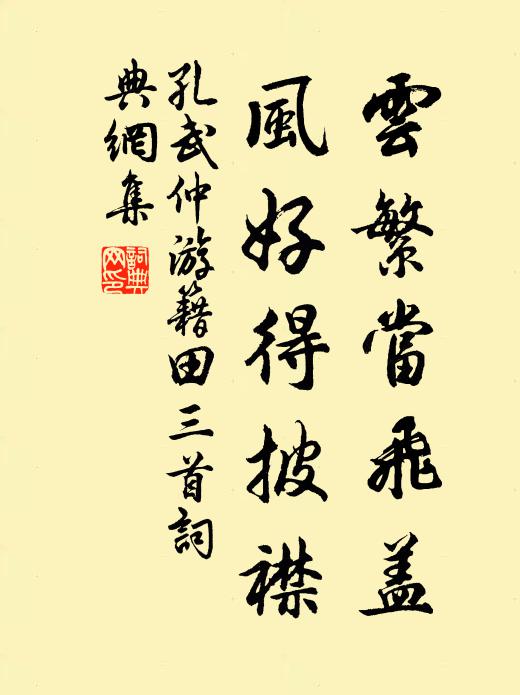 雲繁當飛盖
風好得披襟
孔武仲游籍田三首詞
典網集
詞典
网印